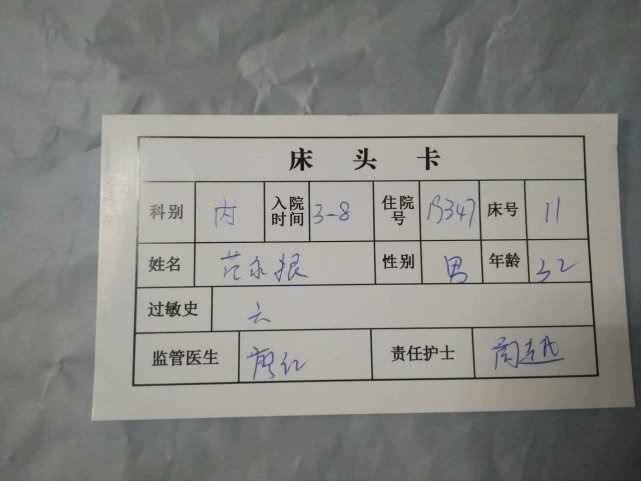 床头卡
科别 内 入院时间 3-8 住院号 13347 床号 11
姓名 范永根 性别 男 年龄 32
过敏史 云
监管医生 廖红 责任护士 周